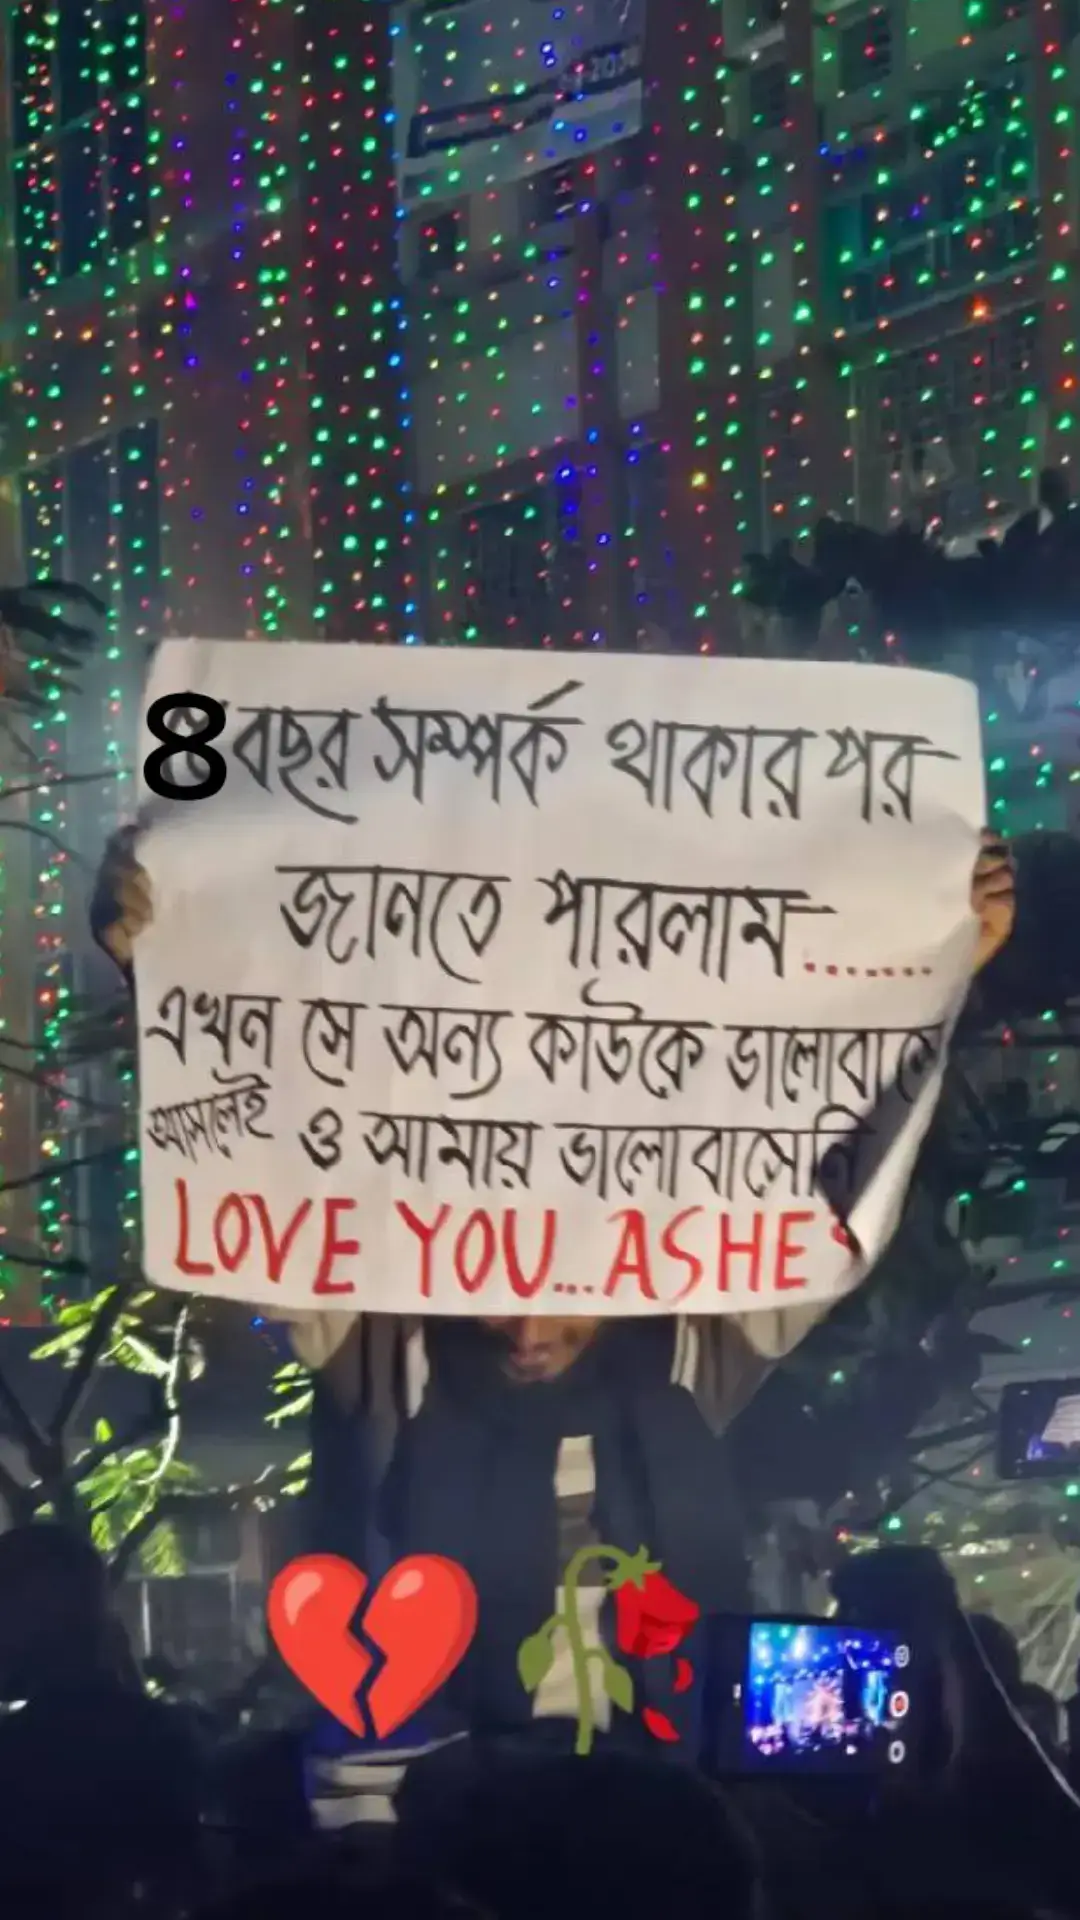 ৪ বছর সম্পর্ক থাকার পর
জানতে পারলাম.......
এখন সে অন্য কাউকে ভালোবাসে
আসলেই ও আমায় ভালোবাসেনি
LOVE YOU...ASHES